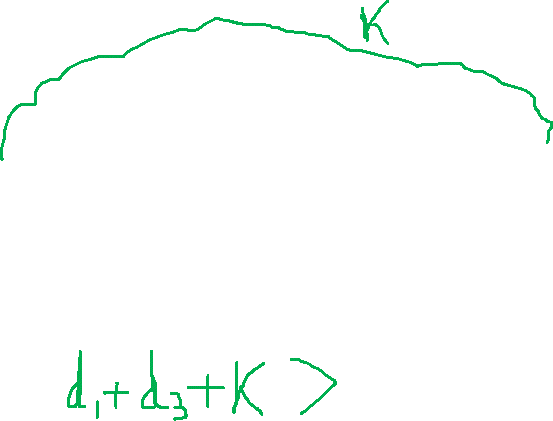 K
d₁+d₃+K >